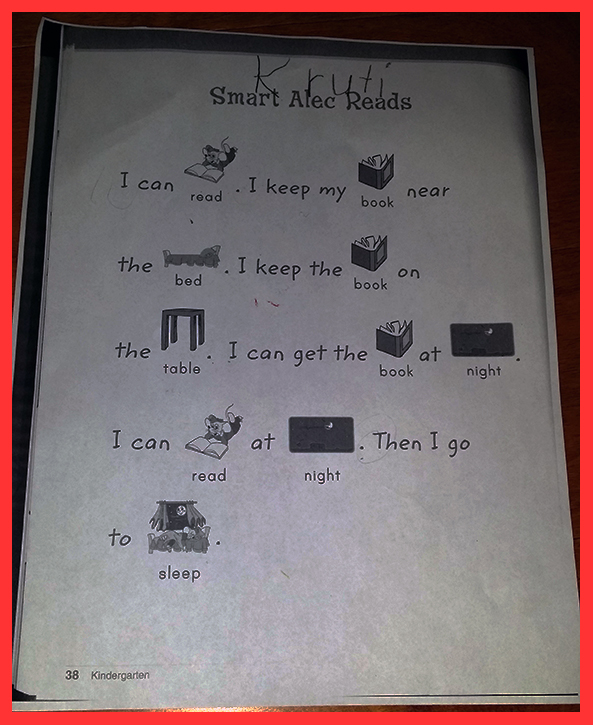 Kruti
Smart Alec Reads
I can read. I keep my book near
the bed. I keep the book on
the table. I can get the book at night.
I can read at night. Then I go
to sleep.
38 Kindergarten